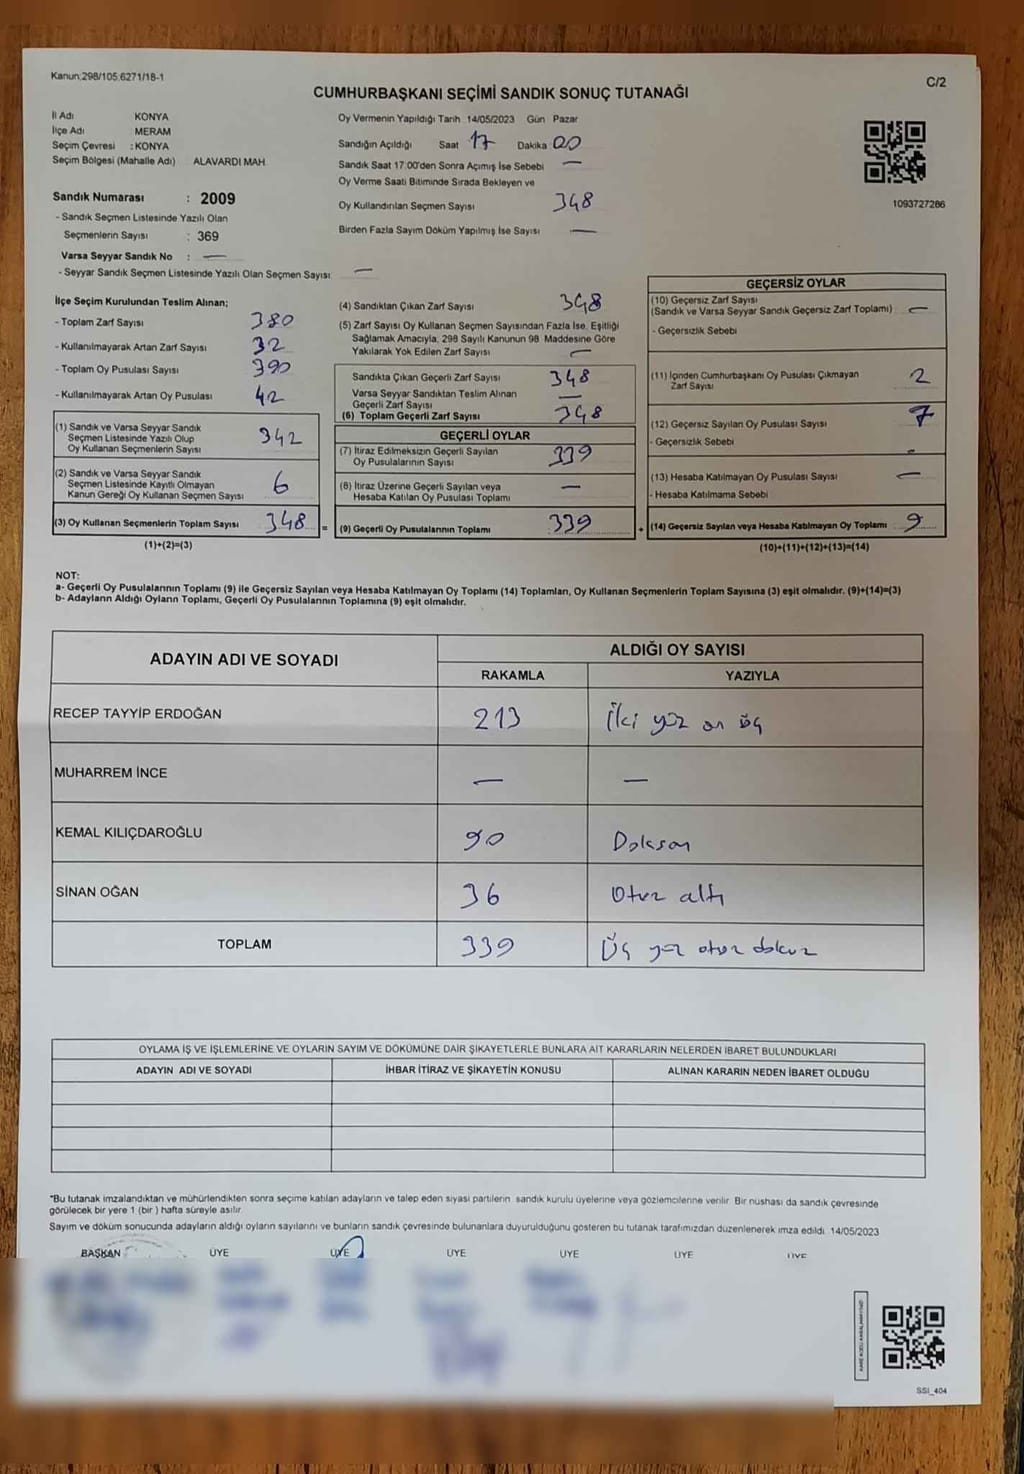 Kanun:298/105.6271/18-1
C/2
CUMHURBAŞKANI SEÇİMİ SANDIK SONUÇ TUTANAĞI
İl Adı KONYA
İlçe Adı MERAM
Seçim Çevresi : KONYA
Seçim Bölgesi (Mahalle Adı) ALAVARDI MAH.
Oy Vermenin Yapıldığı Tarih 14/05/2023 Gün Pazar
Sandığın Açıldığı Saat 17 Dakika 00
Sandık Saat 17:00'den Sonra Açımış İse Sebebi —
Oy Verme Saati Bitiminde Sırada Bekleyen ve
Oy Kullandırılan Seçmen Sayısı 348
Birden Fazla Sayım Döküm Yapılmış İse Sayısı —
1093727286
Sandık Numarası : 2009
- Sandık Seçmen Listesinde Yazılı Olan
Seçmenlerin Sayısı : 369
Varsa Seyyar Sandık No : —
- Seyyar Sandık Seçmen Listesinde Yazılı Olan Seçmen Sayısı: —
İlçe Seçim Kurulundan Teslim Alınan;
- Toplam Zarf Sayısı 380
- Kullanılmayarak Artan Zarf Sayısı 32
- Toplam Oy Pusulası Sayısı 390
- Kullanılmayarak Artan Oy Pusulası 42
(1) Sandık ve Varsa Seyyar Sandık
Seçmen Listesinde Yazılı Olup
Oy Kullanan Seçmenlerin Sayısı 342
(2) Sandık ve Varsa Seyyar Sandık
Seçmen Listesinde Kayıtlı Olmayan
Kanun Gereği Oy Kullanan Seçmen Sayısı 6
(3) Oy Kullanan Seçmenlerin Toplam Sayısı 348 =
(1)+(2)=(3)
(4) Sandıktan Çıkan Zarf Sayısı 348
(5) Zarf Sayısı Oy Kullanan Seçmen Sayısından Fazla İse, Eşitliği
Sağlamak Amacıyla, 298 Sayılı Kanunun 98. Maddesine Göre
Yakılarak Yok Edilen Zarf Sayısı —
Sandıkta Çıkan Geçerli Zarf Sayısı 348
Varsa Seyyar Sandıktan Teslim Alınan
Geçerli Zarf Sayısı —
(6) Toplam Geçerli Zarf Sayısı 348
GEÇERLİ OYLAR
(7) İtiraz Edilmeksizin Geçerli Sayılan
Oy Pusulalarının Sayısı 339
(8) İtiraz Üzerine Geçerli Sayılan veya
Hesaba Katılan Oy Pusulası Toplamı —
(9) Geçerli Oy Pusulalarının Toplamı 339 +
GEÇERSİZ OYLAR
(10) Geçersiz Zarf Sayısı
(Sandık ve Varsa Seyyar Sandık Geçersiz Zarf Toplamı) —
- Geçersizlik Sebebi
(11) İçinden Cumhurbaşkanı Oy Pusulası Çıkmayan
Zarf Sayısı 2
(12) Geçersiz Sayılan Oy Pusulası Sayısı 7
- Geçersizlik Sebebi
(13) Hesaba Katılmayan Oy Pusulası Sayısı —
- Hesaba Katılmama Sebebi
(14) Geçersiz Sayılan veya Hesaba Katılmayan Oy Toplamı 9
(10)+(11)+(12)+(13)=(14)
NOT:
a- Geçerli Oy Pusulalarının Toplamı (9) ile Geçersiz Sayılan veya Hesaba Katılmayan Oy Toplamı (14) Toplamları, Oy Kullanan Seçmenlerin Toplam Sayısına (3) eşit olmalıdır. (9)+(14)=(3)
b- Adayların Aldığı Oyların Toplamı, Geçerli Oy Pusulalarının Toplamına (9) eşit olmalıdır.
ADAYIN ADI VE SOYADI ALDIĞI OY SAYISI
RAKAMLA YAZIYLA
RECEP TAYYİP ERDOĞAN 213 İki yüz on üç
MUHARREM İNCE — —
KEMAL KILIÇDAROĞLU 90 Doksan
SİNAN OĞAN 36 Otuz altı
TOPLAM 339 Üç yüz otuz dokuz
OYLAMA İŞ VE İŞLEMLERİNE VE OYLARIN SAYIM VE DÖKÜMÜNE DAİR ŞİKAYETLERLE BUNLARA AİT KARARLARIN NELERDEN İBARET BULUNDUKLARI
ADAYIN ADI VE SOYADI İHBAR İTİRAZ VE ŞİKAYETİN KONUSU ALINAN KARARIN NEDEN İBARET OLDUĞU
*Bu tutanak imzalandıktan ve mühürlendikten sonra seçime katılan adayların ve talep eden siyasi partilerin sandık kurulu üyelerine veya gözlemcilerine verilir. Bir nüshası da sandık çevresinde
görülecek bir yere 1 (bir ) hafta süreyle asılır.
Sayım ve döküm sonucunda adayların aldığı oyların sayılarını ve bunların sandık çevresinde bulunanlara duyurulduğunu gösteren bu tutanak tarafımızdan düzenlenerek imza edildi. 14/05/2023
BAŞKAN ÜYE ÜYE ÜYE ÜYE ÜYE ÜYE
SSI_404